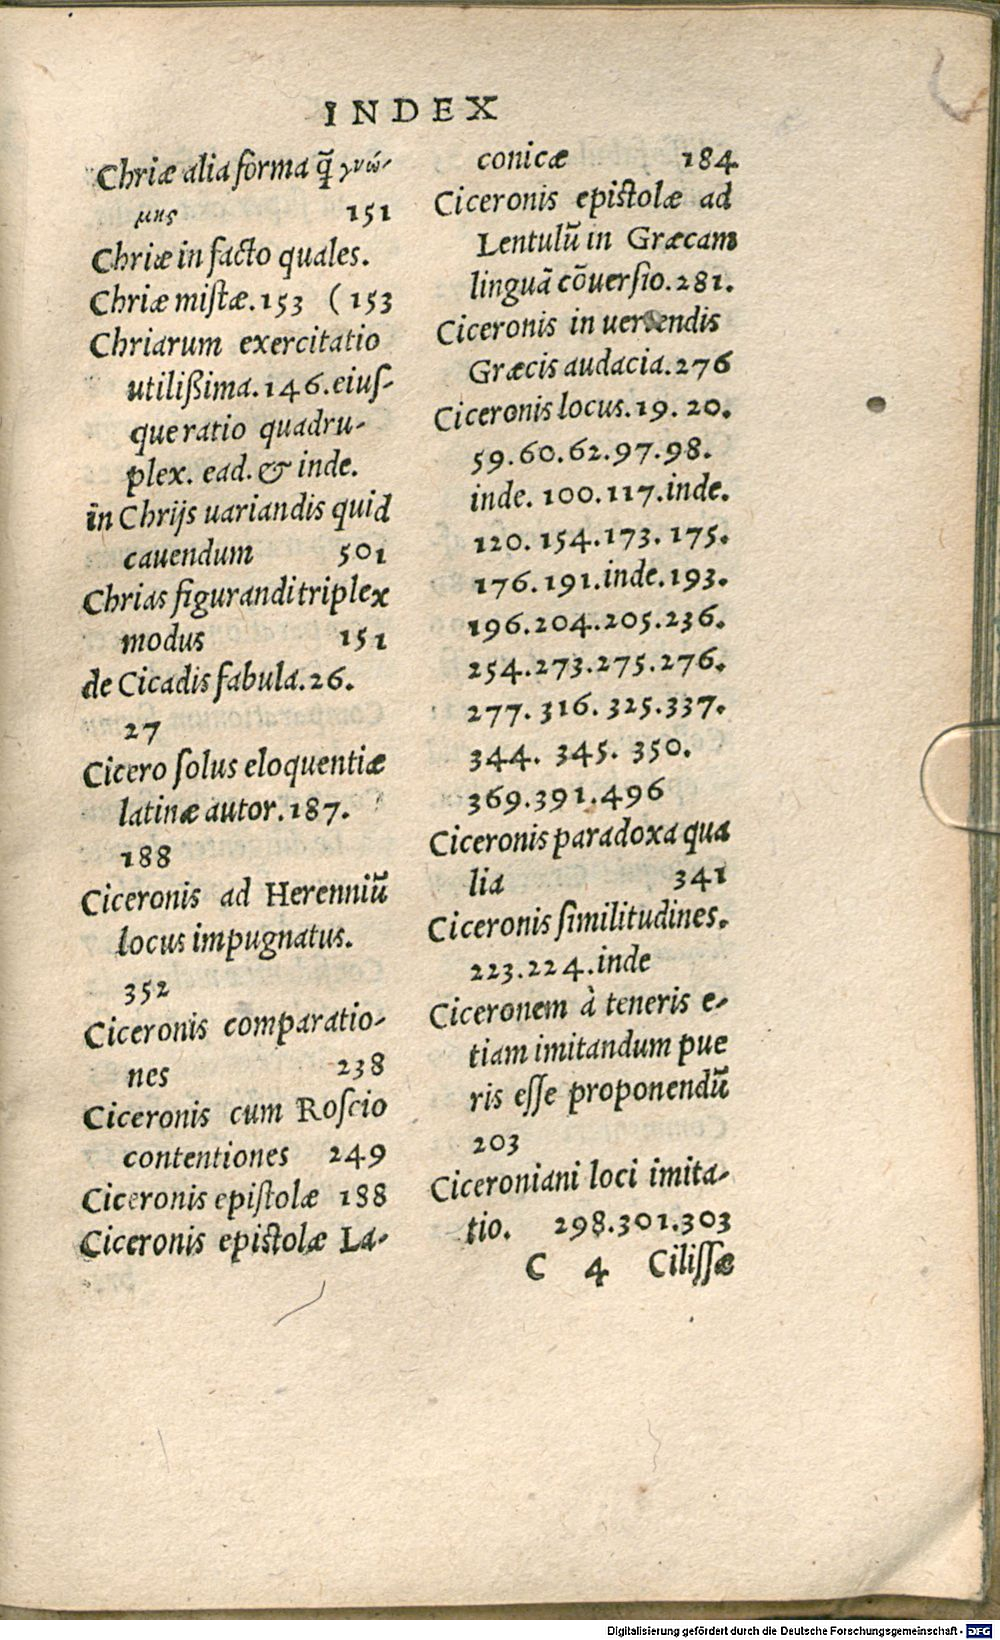 INDEX
Chriæ alia forma q̃ γνώ-
μης 151
Chriæ in facto quales.
Chriæ miſtæ. 153 (153
Chriarum exercitatio
utilißima. 146. eiuſ-
que ratio quadru-
plex. ead. & inde.
in Chrijs uariandis quid
cauendum 501
Chrias figurandi triplex
modus 151
de Cicadis fabula. 26.
27
Cicero ſolus eloquentiæ
latinæ autor. 187.
188
Ciceronis ad Herenniũ
locus impugnatus.
352
Ciceronis comparatio-
nes 238
Ciceronis cum Roſcio
contentiones 249
Ciceronis epiſtolæ 188
Ciceronis epiſtolæ La-
conicæ 184
Ciceronis epiſtolæ ad
Lentulũ in Græcam
linguã cõuerſio. 281.
Ciceronis in uertendis
Græcis audacia. 276
Ciceronis locus. 19. 20.
59. 60. 62. 97. 98.
inde. 100. 117. inde.
120. 154. 173. 175.
176. 191. inde. 193.
196. 204. 205. 236.
254. 273. 275. 276.
277. 316. 325. 337.
344. 345. 350.
369. 391. 496
Ciceronis paradoxa qua
lia 341
Ciceronis ſimilitudines.
223. 224. inde
Ciceronem à teneris e-
tiam imitandum pue
ris eſſe proponendũ
203
Ciceroniani loci imita-
tio. 298. 301. 303
C 4 Ciliſſæ
Digitalisierung gefördert durch die Deutsche Forschungsgemeinschaft - DFG